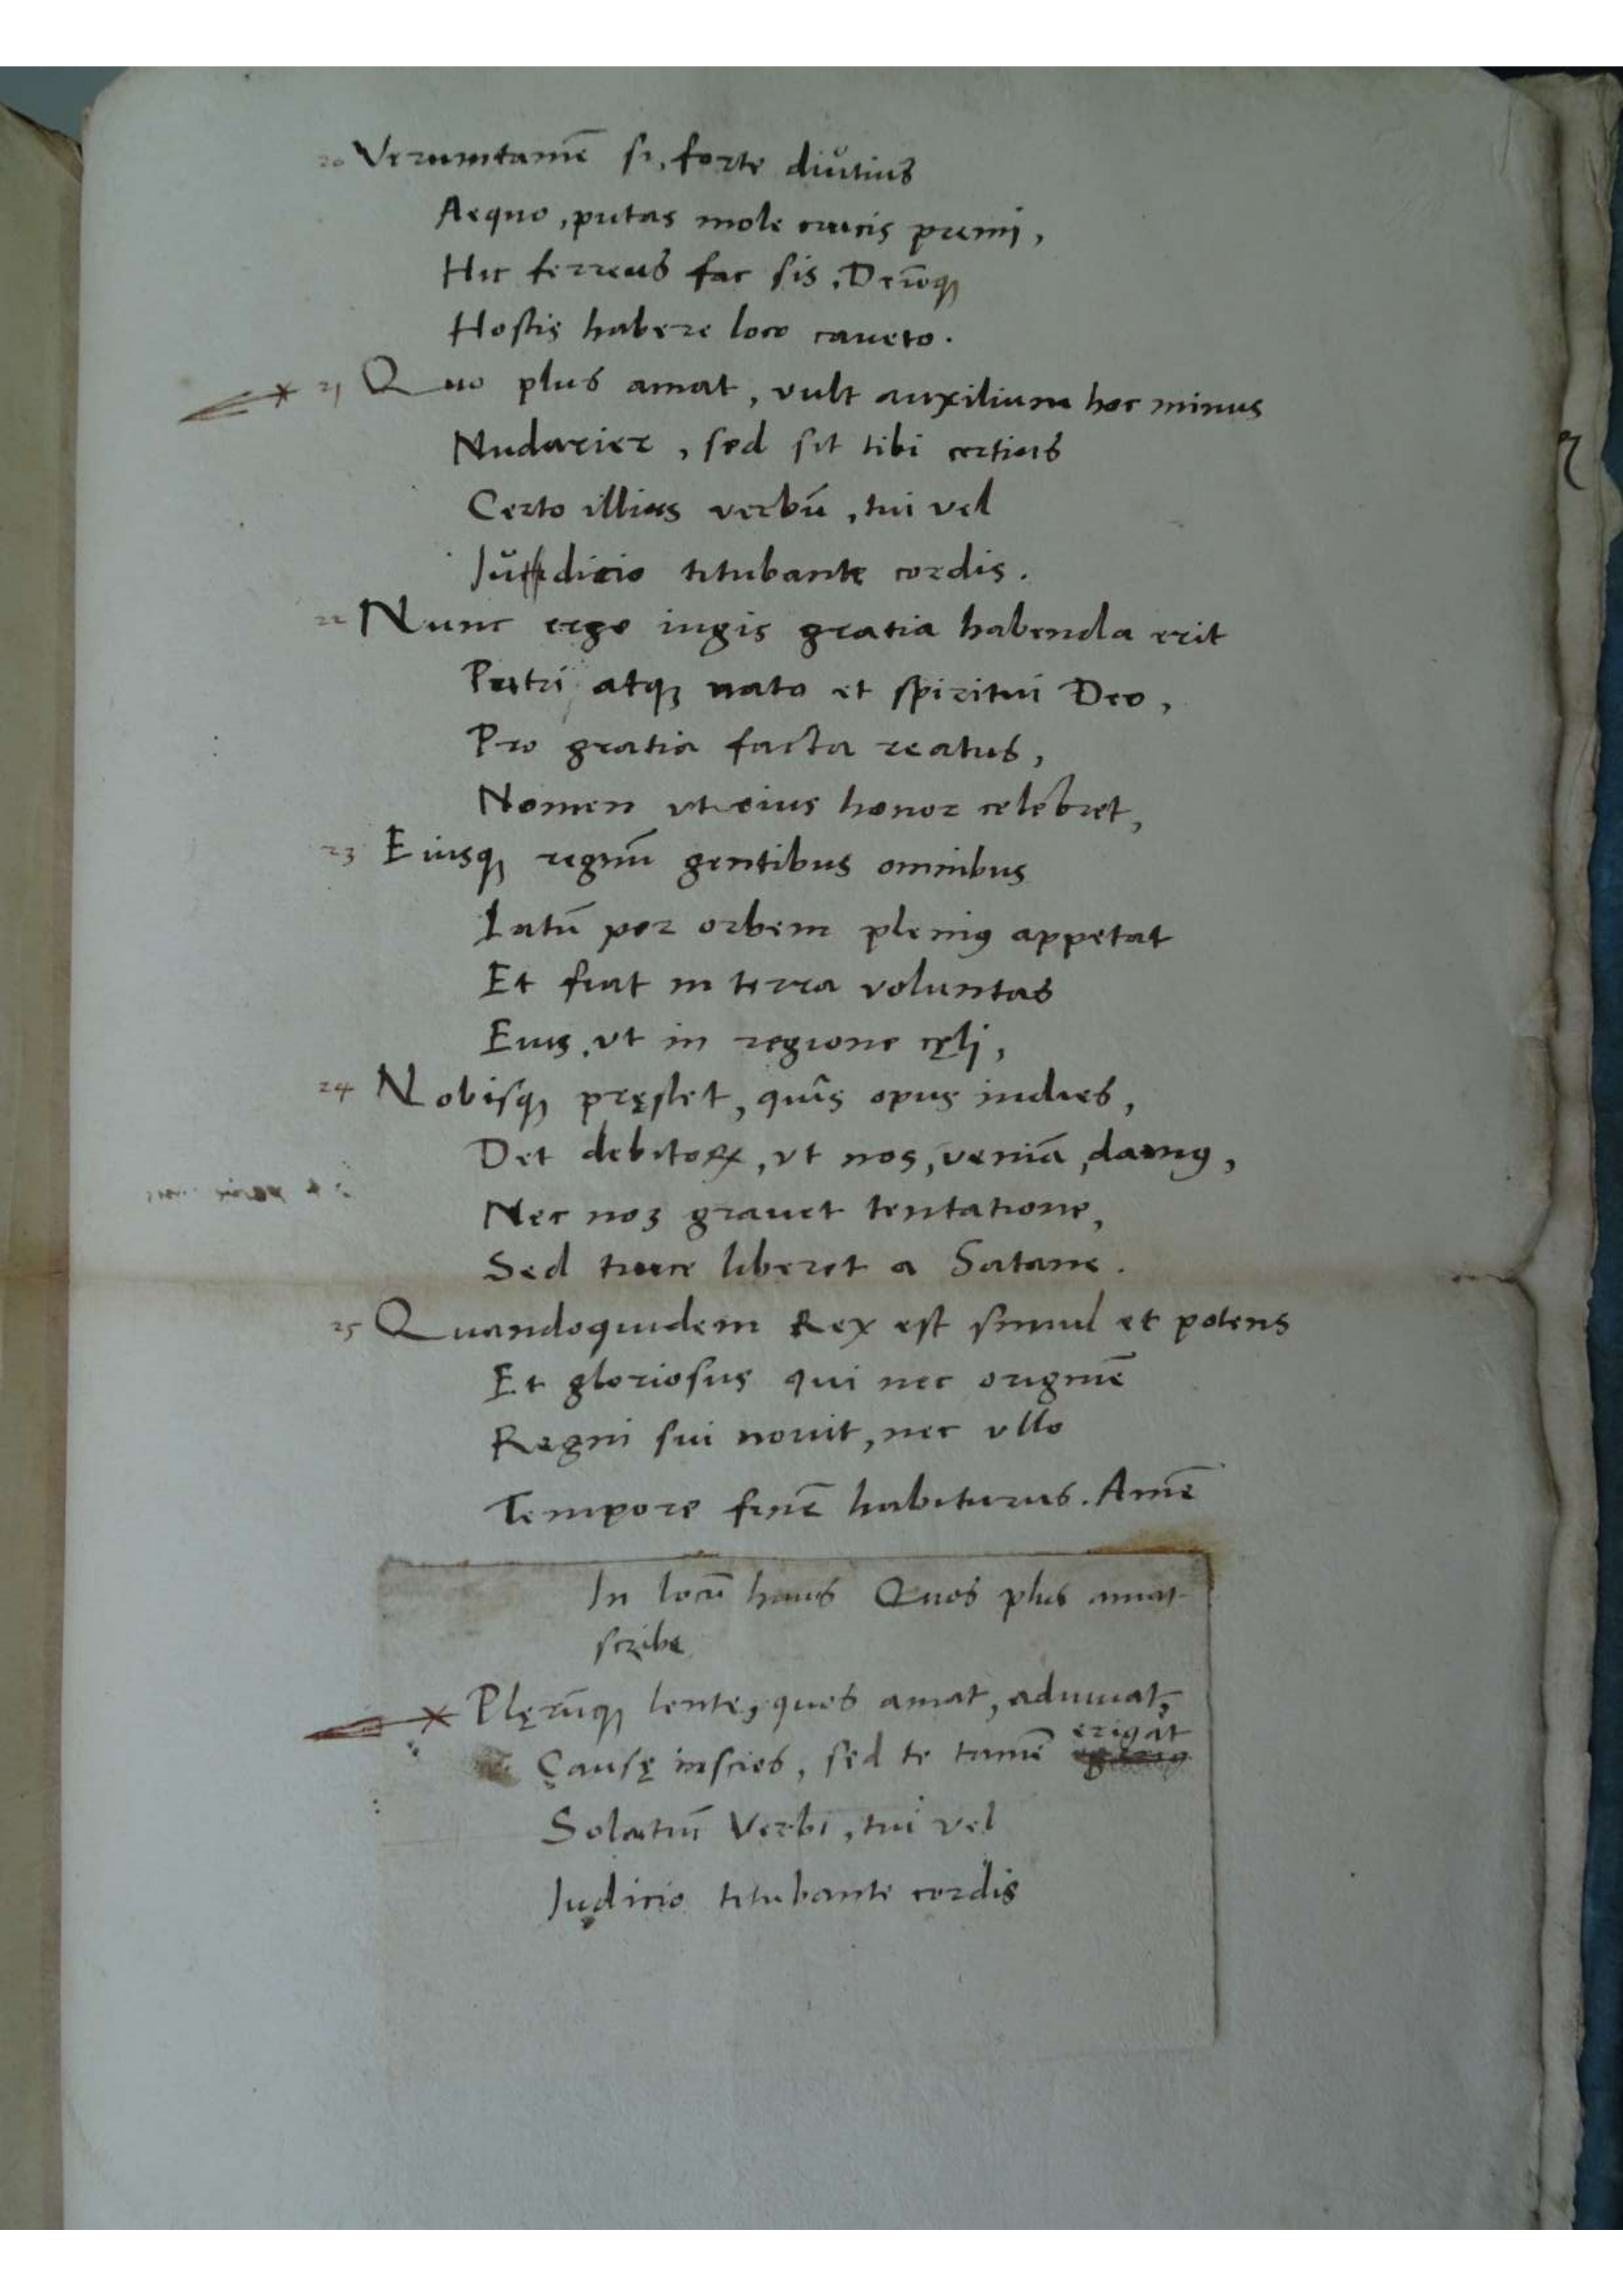 20 Verumtamē si, forte diutius
Aequo, putas mole crucis premi,
Hic ferreus fac sis, Deūq₃
Hostis habere loco caueto.
21 Quo plus amat, vult auxilium hoc minus
Nudarier, sed sit tibi certius
Certo illius verbū, tui vel
Judicio titubante cordis.
22 Nunc ergo iugis gratia habenda erit
Patri atq₃ nato et spiritui Deo,
Pro gratia facta reatus,
Nomen vt eius honor celebret,
23 Eiusq₃ regnū gentibus omnibus
Latū per orbem pleniꝰ appetat
Et fiat in terra voluntas
Eius, vt in regione cęli,
24 Nobisq₃ pręstet, quîs opus indies,
Det debitoꝝ, vt nos, veniā, damꝰ,
Nec nos grauet tentatione,
Sed truce liberet a Satane.
25 Quandoquidem Rex est simul et potens
Et gloriosus qui nec originē
Regni sui nouit, nec vllo
Tempore finē habiturus. Amē
In locū huius Quos plus amat
scribe
Plęrūq₃ lente, quos amat, adiuuat,
erigat
Causę inscios, sed te tamē
Solatiū Verbi, tui vel
Judicio titubante cordis